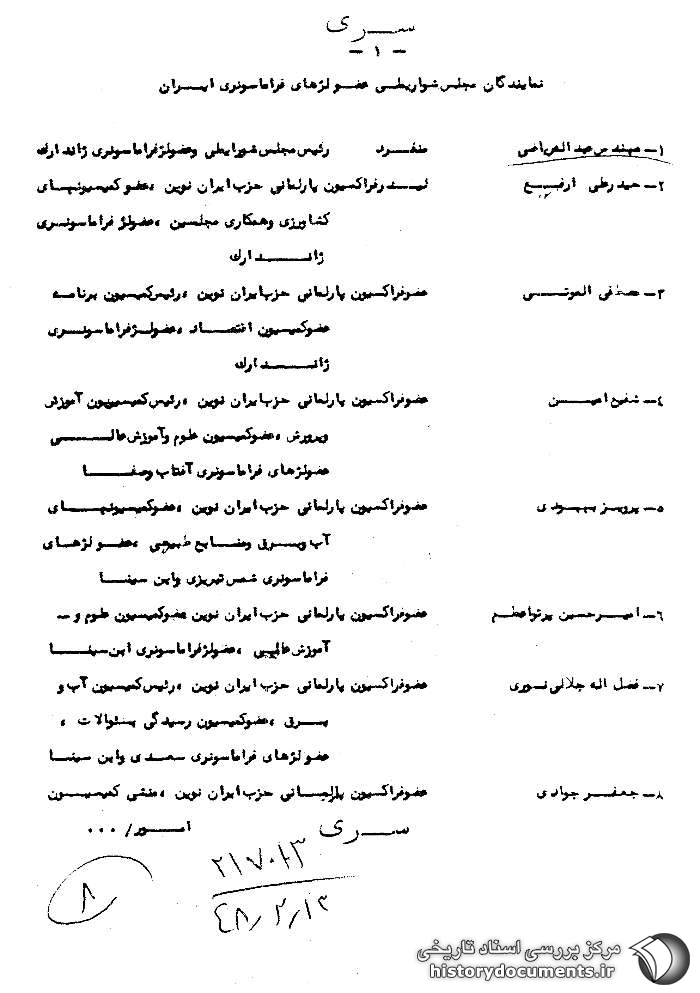 سری
- ۱ -
نمایندگان مجلس شورایملی عضو لژهای فراماسونری ایران
۱- مهندس عبدالله ریاضی منفرد رئیس مجلس شورایملی وعضولژفراماسونری ژاندارک
۲- حیدرعلی ارفع لیدرفراکسیون پارلمانی حزب ایران نوین ،عضو کمیسیونهای
کشاورزی وهمکاری مجلسین ،عضولژ فراماسونری
ژاندارک
۳- مصطفی الموتی عضوفراکسیون پارلمانی حزب ایران نوین ،رئیس کمیسیون برنامه
عضوکمیسیون اقتصاد ،عضولژفراماسونری
ژاندارک
۴- شفیع امین عضوفراکسیون پارلمانی حزب ایران نوین ،رئیس کمیسیون آموزش
وپرورش ،عضوکمیسیون علوم وآموزش عالی
عضولژهای فراماسونری آفتاب وصفا
۵- پرویز بهبودی عضوفراکسیون پارلمانی حزب ایران نوین ،عضوکمیسیونهای
آب وبرق ومنابع طبیعی ،عضو لژهای
فراماسونری شمس تبریزی وابن سینا
۶- امیرحسین پرتواعظم عضوفراکسیون پارلمانی حزب ایران نوین عضوکمیسیون علوم و -
آموزش عالی ،عضولژفراماسونری ابن سینا
۷- فضل اله جلالی نوری عضوفراکسیون پارلمانی حزب ایران نوین ،رئیس کمیسیون آب و
برق ،عضوکمیسیون رسیدگی بسئوالات ،
عضو لژهای فراماسونری سعدی وابن سینا
۸- جعفر جوادی عضوفراکسیون پارلمانی حزب ایران نوین ،منشی کمیسیون
امور/ ...
سری
۴۸/۲/۱۳
۸
مرکز بررسی اسناد تاریخی
historydocuments.ir